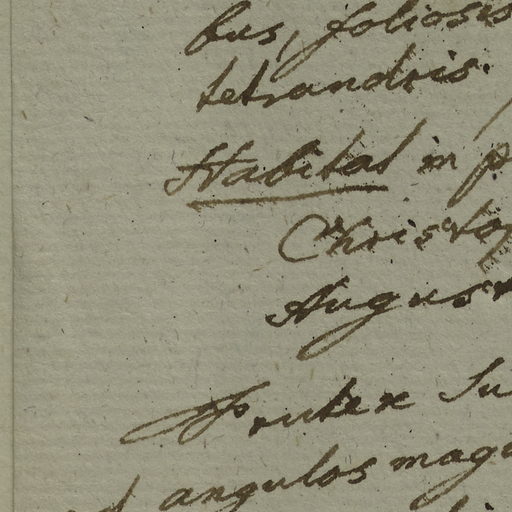 bus, foliosis
tetrandris.
Habitat in
Christop
August
Frutex Su
angulos mag